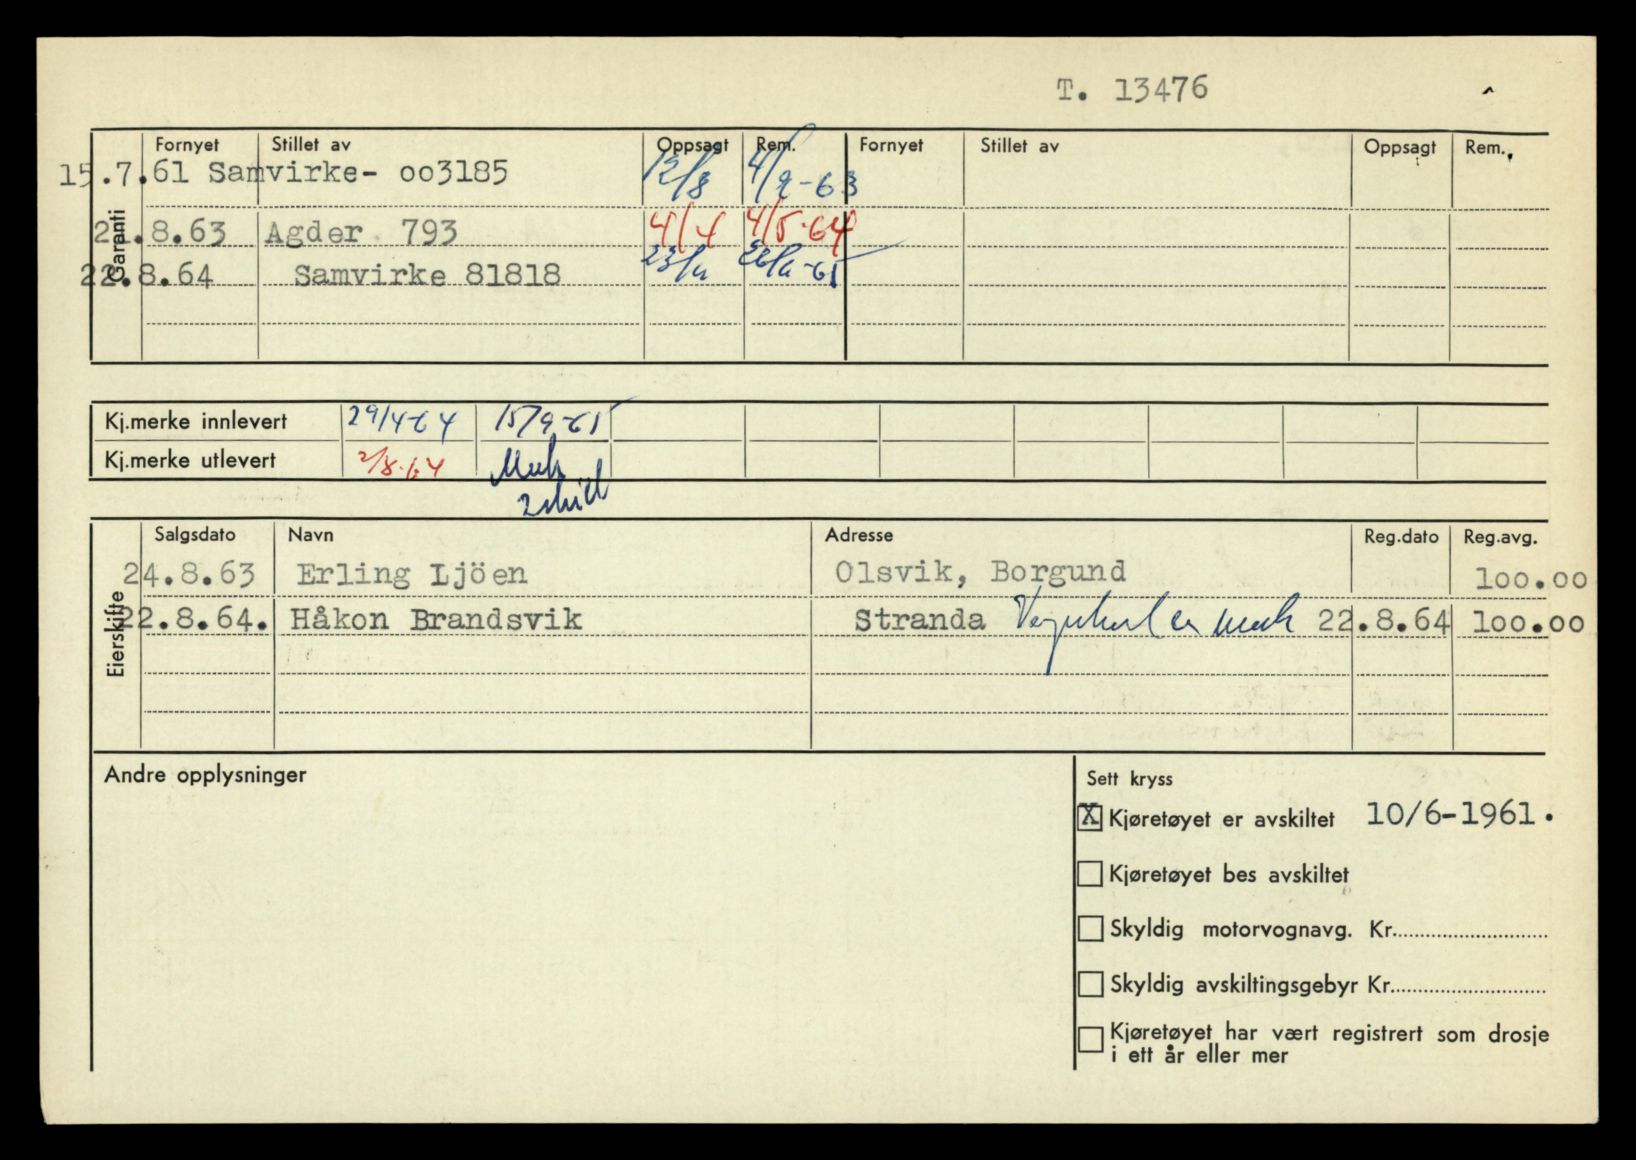 T. 13476
Garanti
Fornyet Stillet av Oppsagt Rem. Fornyet Stillet av Oppsagt Rem.
15.7.61 Samvirke- oo3185 12/8 4/9-63
21.8.63 Agder 793 4/4 4/5-64
22.8.64 Samvirke 81818
Kj.merke innlevert 29/4-64 15/9-65
Kj.merke utlevert 2/8-64
Eierskifte
Salgsdato Navn Adresse Reg.dato Reg.avg.
24.8.63 Erling Ljöen Olsvik, Borgund 100.00
22.8.64. Håkon Brandsvik Stranda 22.8.64 100.00
Andre opplysninger
Sett kryss
X Kjøretøyet er avskiltet 10/6-1961.
Kjøretøyet bes avskiltet
Skyldig motorvognavg. Kr.
Skyldig avskiltingsgebyr Kr.
Kjøretøyet har vært registrert som drosje
i ett år eller mer